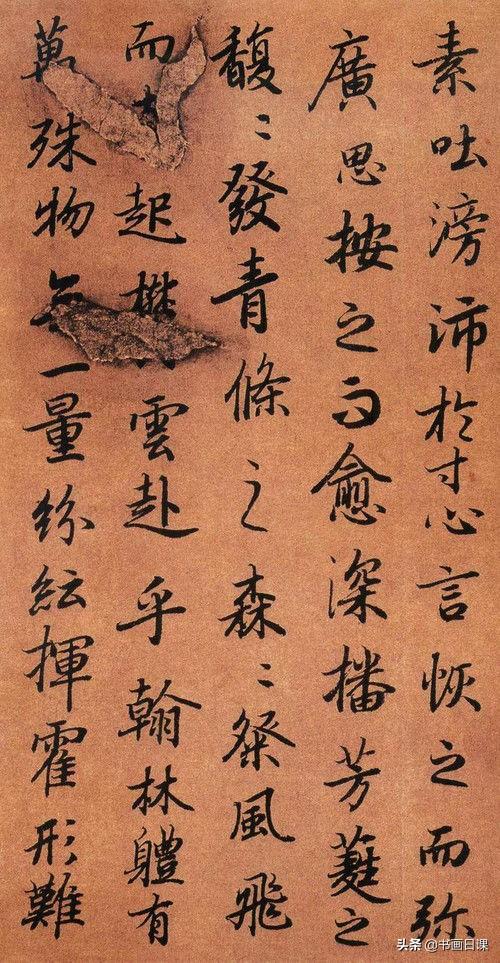 素吐滂沛於寸心言恢之而弥
廣思按之而愈深播芳蕤之
馥〻發青條之森〻粲風飛
而起雲赴乎翰林軆有
萬殊物無一量紛紜揮霍形難
头条@书画日课